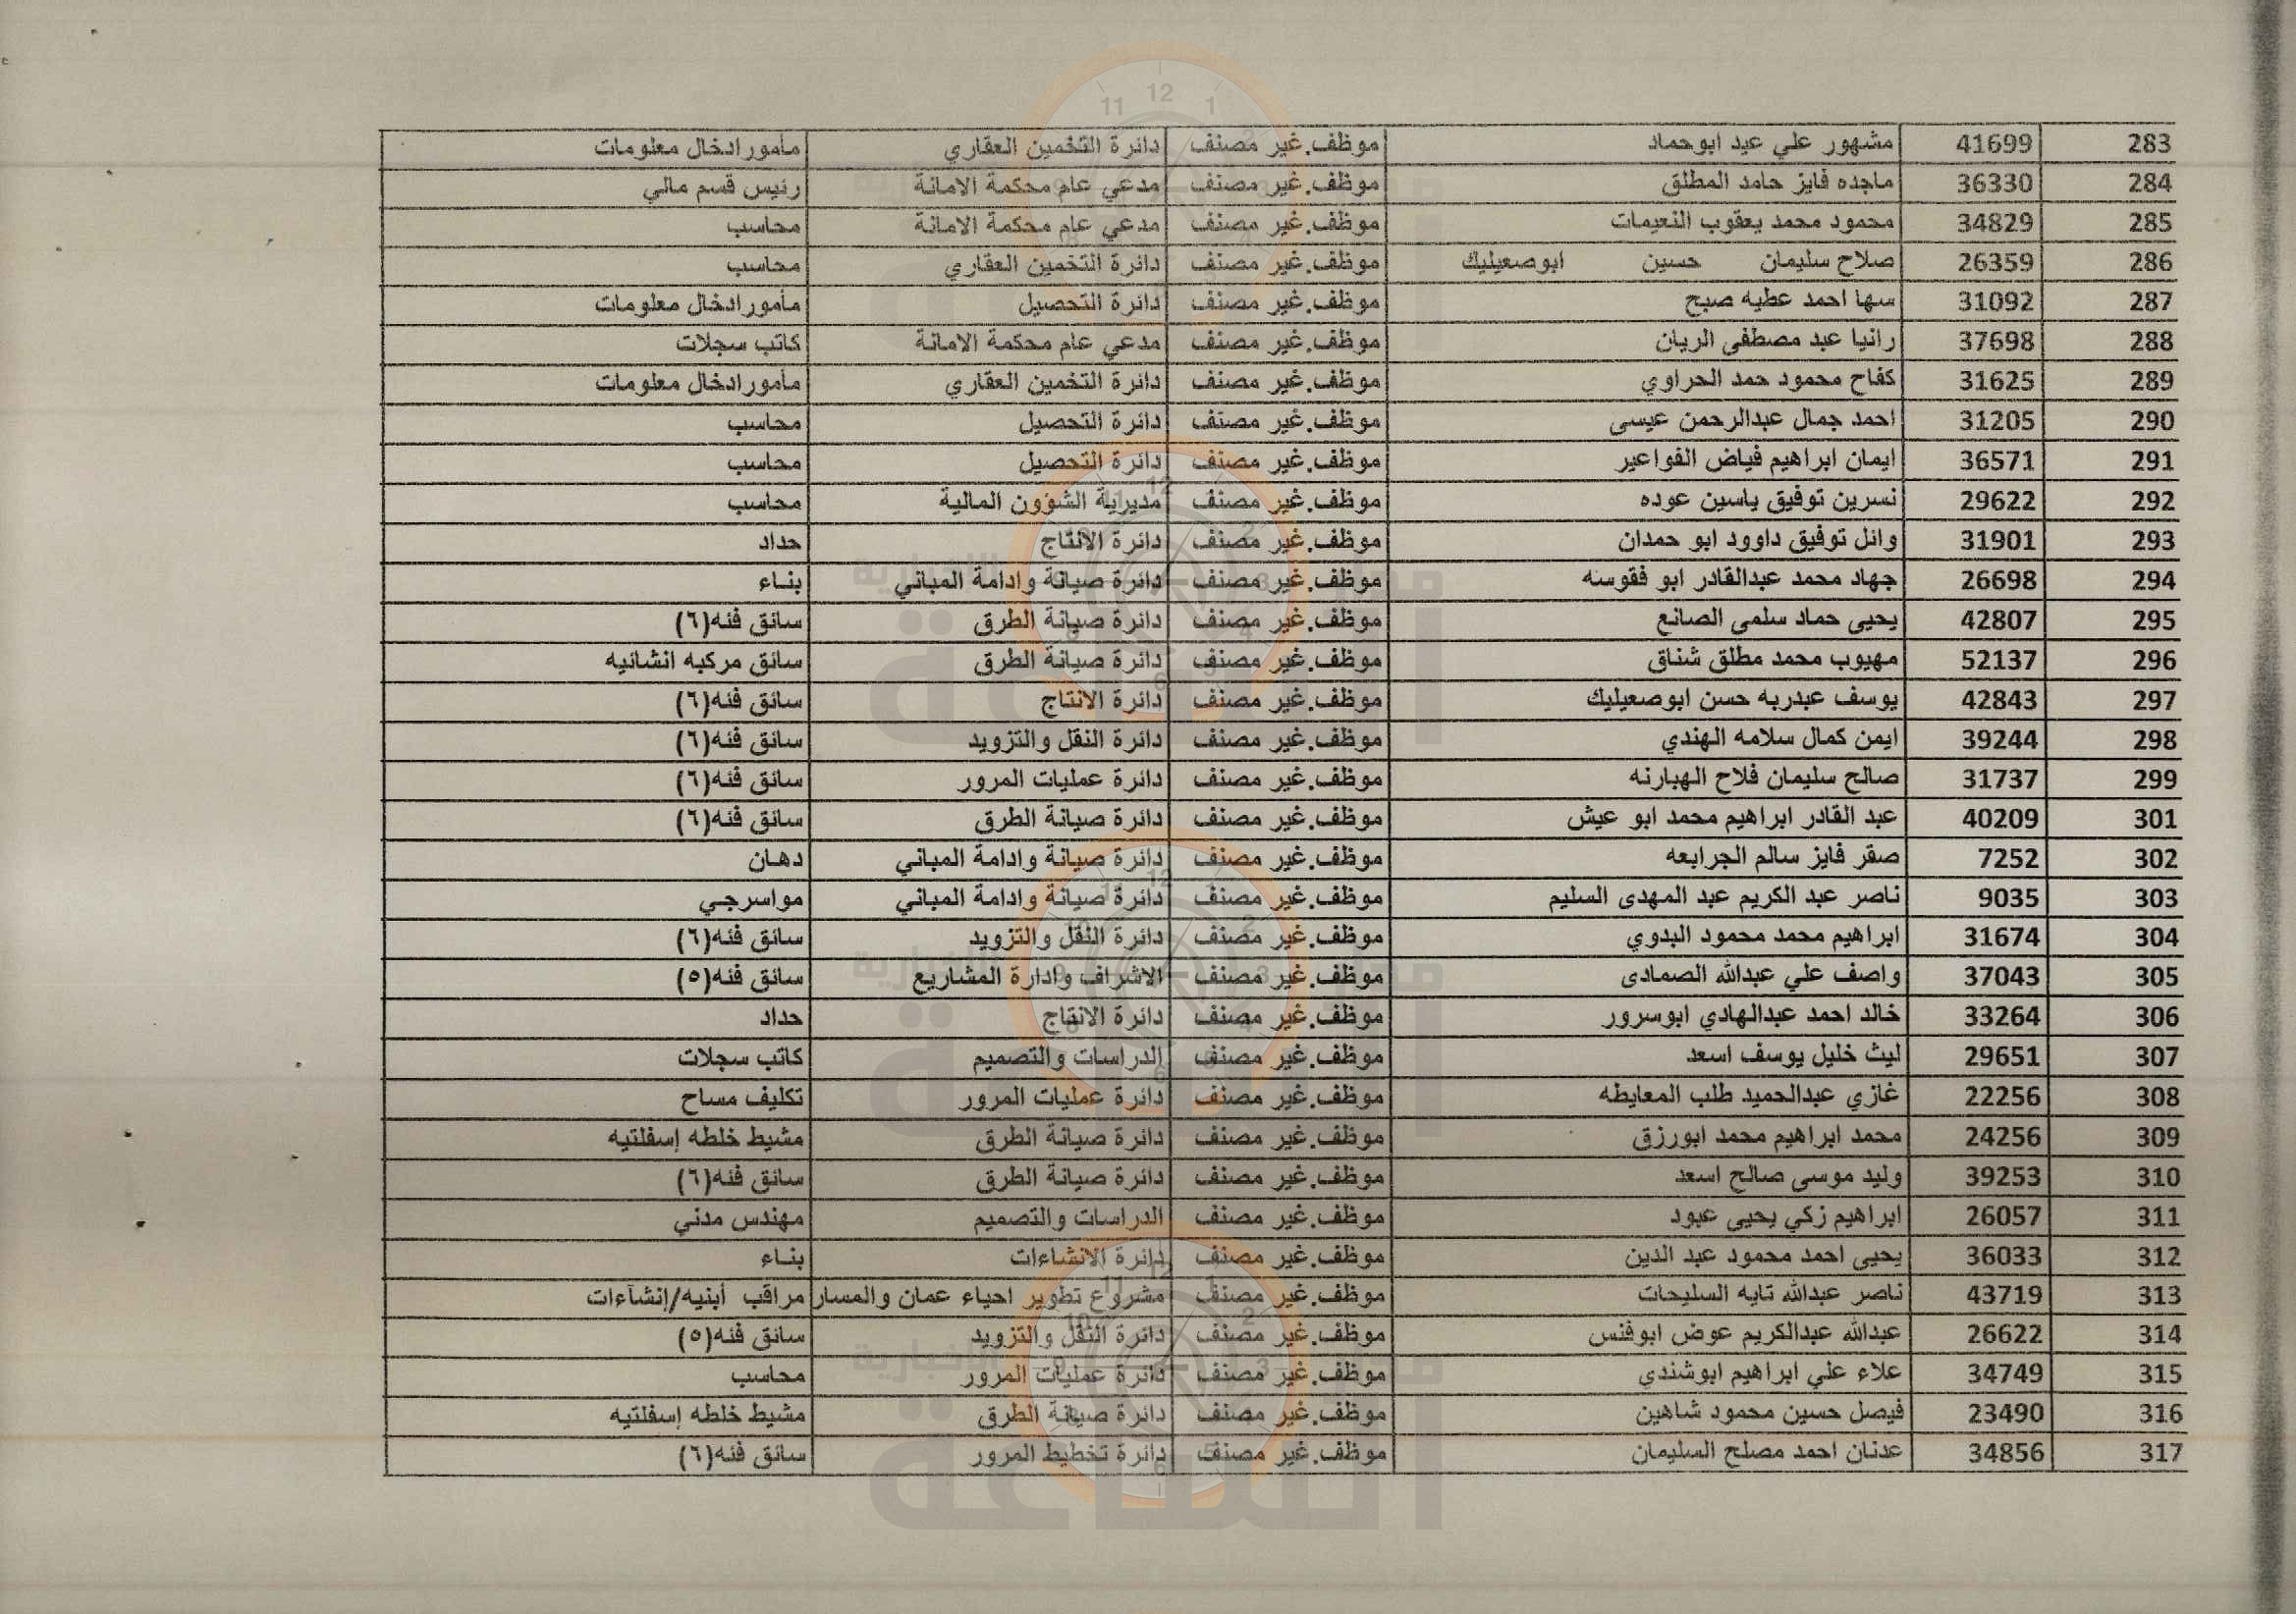 283 41699 مشهور علي عيد ابوحماد موظف.غير مصنف دائرة التخمين العقاري مأمور ادخال معلومات
284 36330 ماجده فايز حامد المطلق موظف.غير مصنف مدعي عام محكمة الامانة رئيس قسم مالي
285 34829 محمود محمد يعقوب النعيمات موظف.غير مصنف مدعي عام محكمة الامانة محاسب
286 26359 صلاح سليمان حسين ابوصعيليك موظف.غير مصنف دائرة التخمين العقاري محاسب
287 31092 سها احمد عطيه صبح موظف.غير مصنف دائرة التحصيل مأمور ادخال معلومات
288 37698 رانيا عبد مصطفى الريان موظف.غير مصنف مدعي عام محكمة الامانة كاتب سجلات
289 31625 كفاح محمود حمد الحراوي موظف.غير مصنف دائرة التخمين العقاري مأمور ادخال معلومات
290 31205 احمد جمال عبدالرحمن عيسى موظف.غير مصنف دائرة التحصيل محاسب
291 36571 ايمان ابراهيم فياض الفواعير موظف.غير مصنف دائرة التحصيل محاسب
292 29622 نسرين توفيق ياسين عوده موظف.غير مصنف مديرية الشؤون المالية محاسب
293 31901 وائل توفيق داوود ابو حمدان موظف.غير مصنف دائرة الانتاج حداد
294 26698 جهاد محمد عبدالقادر ابو فقوسه موظف.غير مصنف دائرة صيانة وادامة المباني بناء
295 42807 يحيى حماد سلمى الصانع موظف.غير مصنف دائرة صيانة الطرق سائق فئه(٦)
296 52137 مهيوب محمد مطلق شناق موظف.غير مصنف دائرة صيانة الطرق سائق مركبه انشائيه
297 42843 يوسف عبدربه حسن ابوصعيليك موظف.غير مصنف دائرة الانتاج سائق فئه(٦)
298 39244 ايمن كمال سلامه الهندي موظف.غير مصنف دائرة النقل والتزويد سائق فئه(٦)
299 31737 صالح سليمان فلاح الهبارنه موظف.غير مصنف دائرة عمليات المرور سائق فئه(٦)
301 40209 عبد القادر ابراهيم محمد ابو عيش موظف.غير مصنف دائرة صيانة الطرق سائق فئه(٦)
302 7252 صقر فايز سالم الجرابعه موظف.غير مصنف دائرة صيانة وادامة المباني دهان
303 9035 ناصر عبد الكريم عبد المهدى السليم موظف.غير مصنف دائرة صيانة وادامة المباني مواسرجي
304 31674 ابراهيم محمد محمود البدوي موظف.غير مصنف دائرة النقل والتزويد سائق فئه(٦)
305 37043 واصف علي عبدالله الصمادى موظف.غير مصنف الاشراف وادارة المشاريع سائق فئه(٥)
306 33264 خالد احمد عبدالهادي ابوسرور موظف.غير مصنف دائرة الانتاج حداد
307 29651 ليث خليل يوسف اسعد موظف.غير مصنف الدراسات والتصميم كاتب سجلات
308 22256 غازي عبدالحميد طلب المعايطه موظف.غير مصنف دائرة عمليات المرور تكليف مساح
309 24256 محمد ابراهيم محمد ابورزق موظف.غير مصنف دائرة صيانة الطرق مشيط خلطه إسفلتيه
310 39253 وليد موسى صالح اسعد موظف.غير مصنف دائرة صيانة الطرق سائق فئه(٦)
311 26057 ابراهيم زكي يحيى عبود موظف.غير مصنف الدراسات والتصميم مهندس مدني
312 36033 يحيى احمد محمود عبد الدين موظف.غير مصنف دائرة الانشاءات بناء
313 43719 ناصر عبدالله تايه السليحات موظف.غير مصنف مشروع تطوير احياء عمان والمسار مراقب أبنيه/إنشآءات
314 26622 عبدالله عبدالكريم عوض ابوفنس موظف.غير مصنف دائرة النقل والتزويد سائق فئه(٥)
315 34749 علاء علي ابراهيم ابوشندي موظف.غير مصنف دائرة عمليات المرور محاسب
316 23490 فيصل حسين محمود شاهين موظف.غير مصنف دائرة صيانة الطرق مشيط خلطه إسفلتيه
317 34856 عدنان احمد مصلح السليمان موظف.غير مصنف دائرة تخطيط المرور سائق فئه(٦)